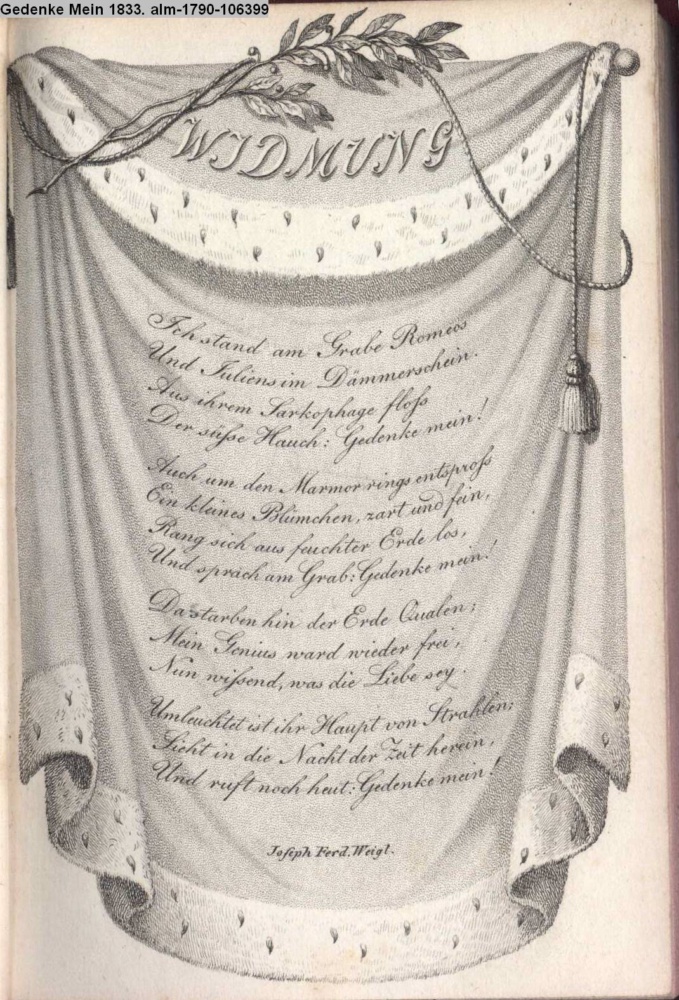 Gedenke Mein 1833. alm-1790-106399
WIDMUNG
Ich stand am Grabe Romeos
Und Juliens im Dämmerschein.
Aus ihrem Sarkophage floſs
Der süſse Hauch: Gedenke mein!
Auch um den Marmor rings entsproſs
Ein kleines Blümchen, zart und fein,
Rang sich aus feuchter Erde los,
Und sprach am Grab: Gedenke mein!
Da starben hin der Erde Qualen;
Mein Genius ward wieder frei,
Nun wiſsend, was die Liebe sey.
Umleuchtet ist ihr Haupt von Strahlen;
Sieht in die Nacht der Zeit herein,
Und ruft noch heut: Gedenke mein!
Joseph Ferd. Weigl.